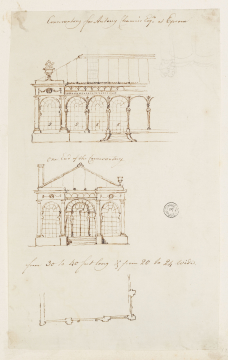 Conservatory for Antony Chamier Esqr. at Epsom
One End of the Conservatory
from 30 to 40 feet long & from 20 to 24 wide